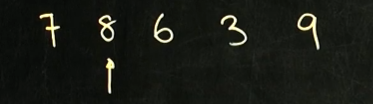 7 8 6 3 9